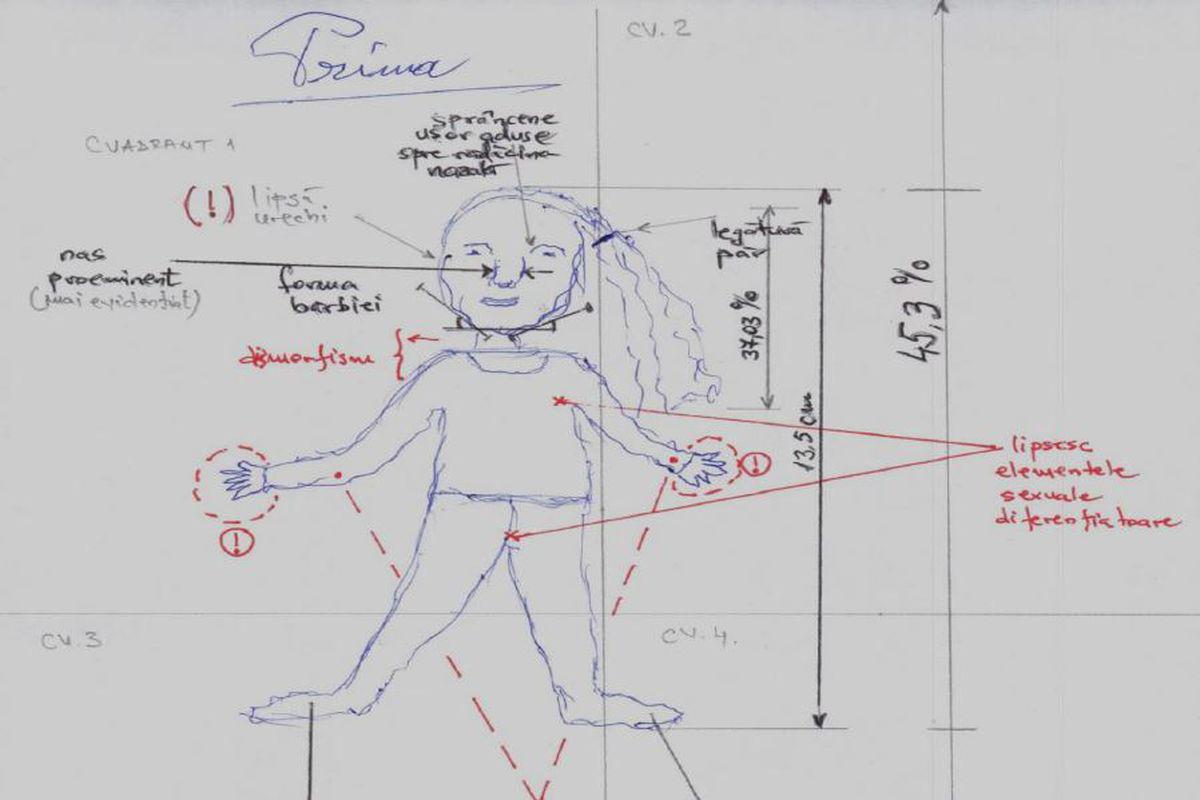 Prima
CV. 2
CUADRANT 1
sprâncene
ușor aduse
spre rădăcina
nazală
(!) lipsă
urechi
nas
proeminent
(mai evidențiat)
forma
bărbiei
legătură
păr
37,03 %
45,3 %
dimorfism
13,5 cm
lipsesc
elementele
sexuale
diferențiatoare
!
!
CV. 3
CV. 4.